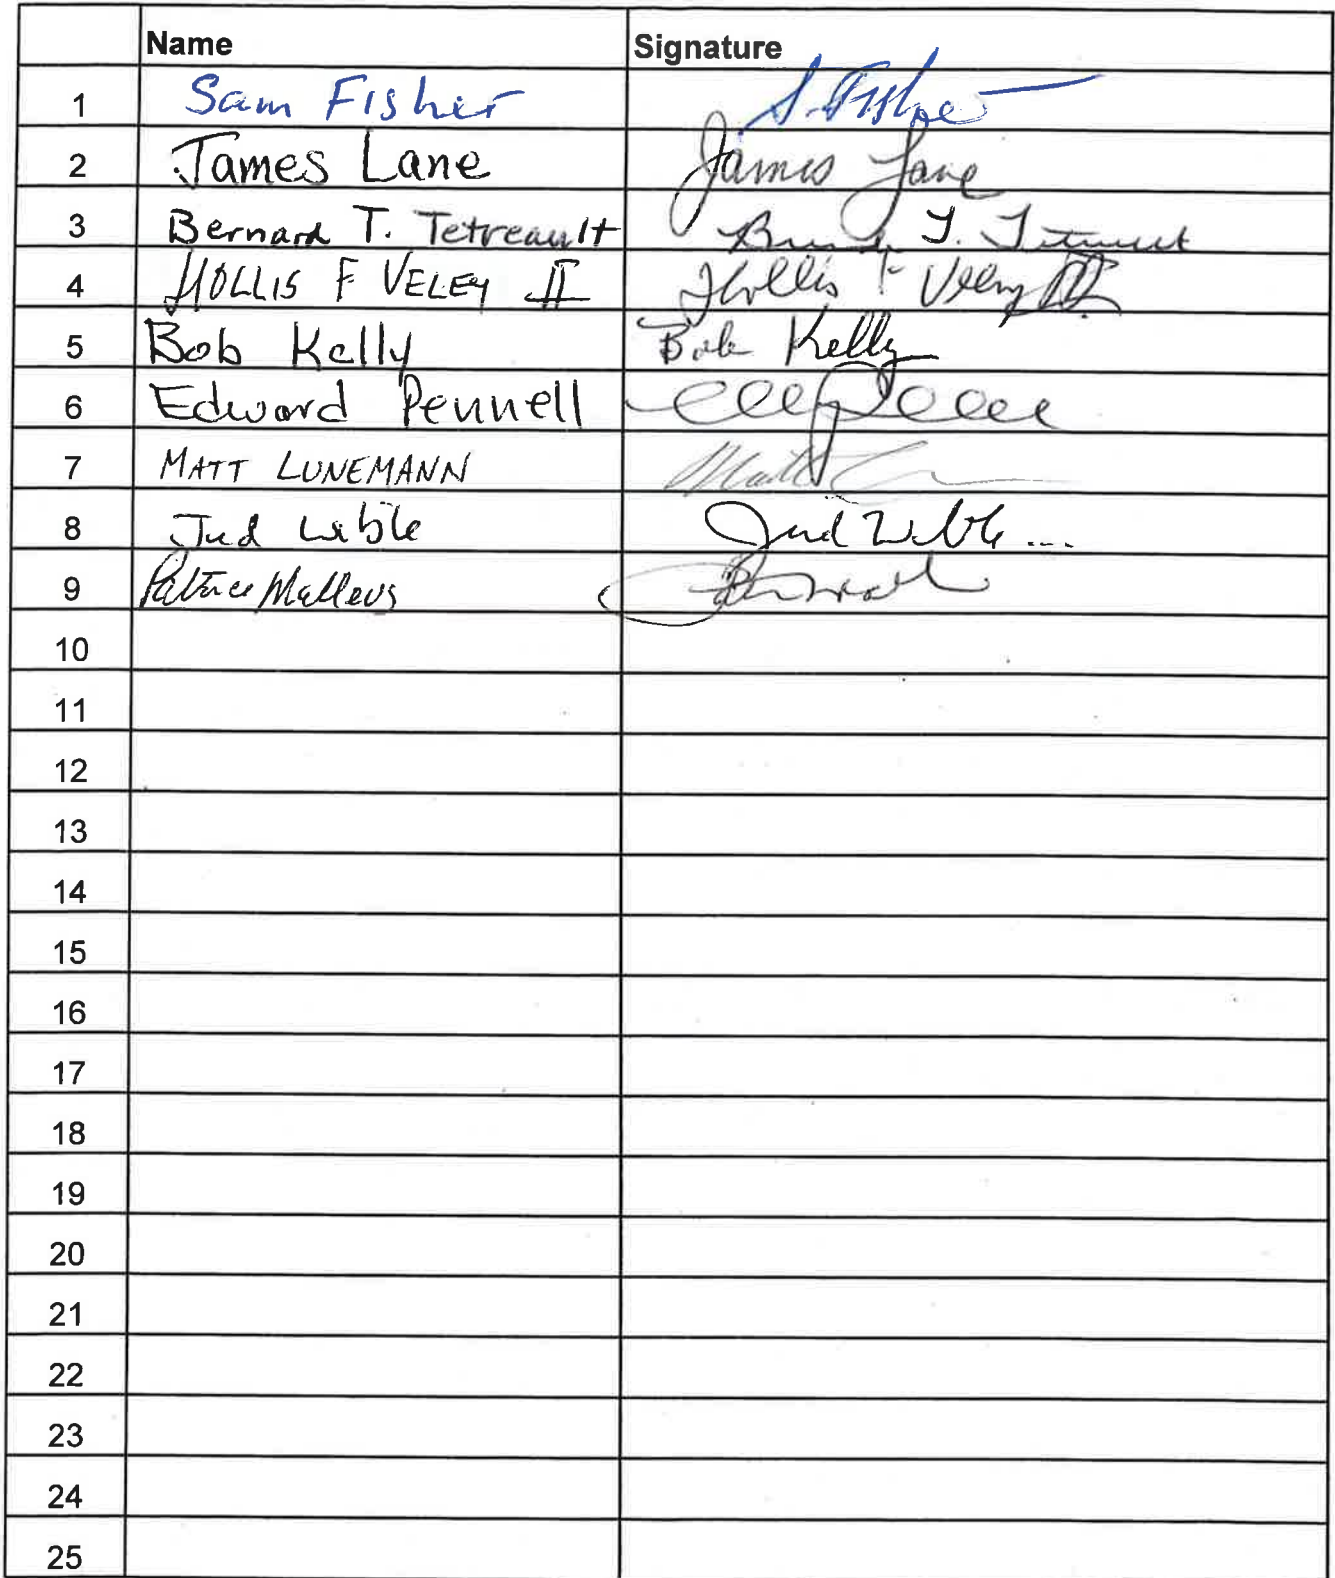 Name Signature
1 Sam Fisher S. Fisher
2 James Lane James Lane
3 Bernard T. Tetreault T. Tetreault
4 HOLLIS F VELEY II Hollis F Veley II
5 Bob Kelly Bob Kelly
6 Edward Pennell
7 MATT LUNEMANN Matt
8 Jud Jud
9 Patrice
10
11
12
13
14
15
16
17
18
19
20
21
22
23
24
25